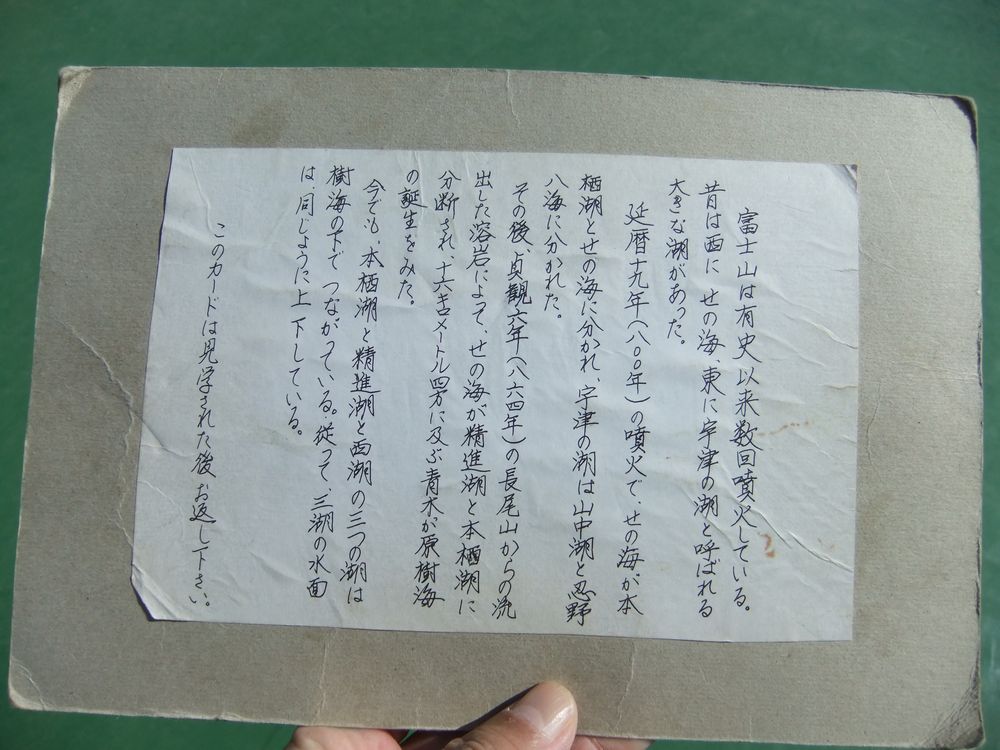 富士山は有史以来数回噴火している。
昔は西に せの海、東に宇津の湖と呼ばれる
大きな湖があった。
延暦十九年(八〇〇年)の噴火で、せの海が本
栖湖とせの海に分かれ、宇津の湖は山中湖と忍野
八海に分かれた。
その後、貞観六年(八六四年)の長尾山からの流
出した溶岩によって、せの海が精進湖と本栖湖に
分断され、十六キロメートル四方に及ぶ青木が原樹海
の誕生をみた。
今でも、本栖湖と精進湖と西湖の三つの湖は
樹海の下で つながっている。従って、三湖の水面
は、同じように上下している。
このカードは見学された後 お返し下さい。